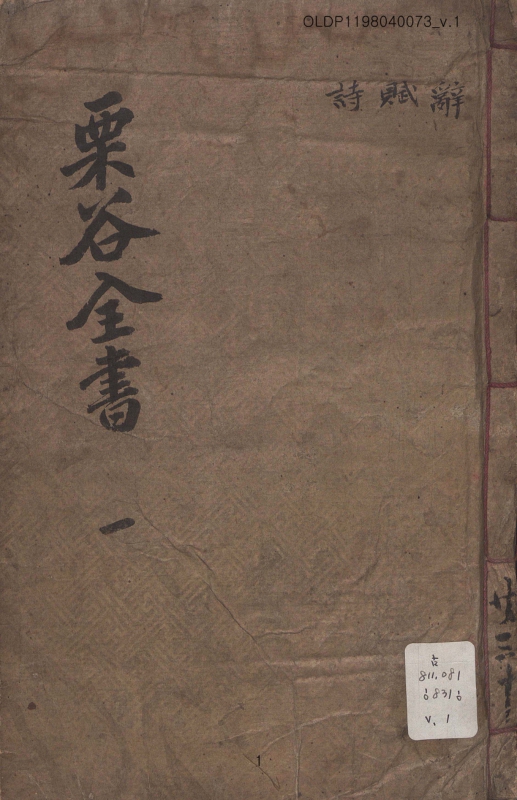 OLDP1198040073_v.1
辭賦詩
栗谷全書 一
共三十
古
811.081
ㅇ831ㅇ
v. 1
1